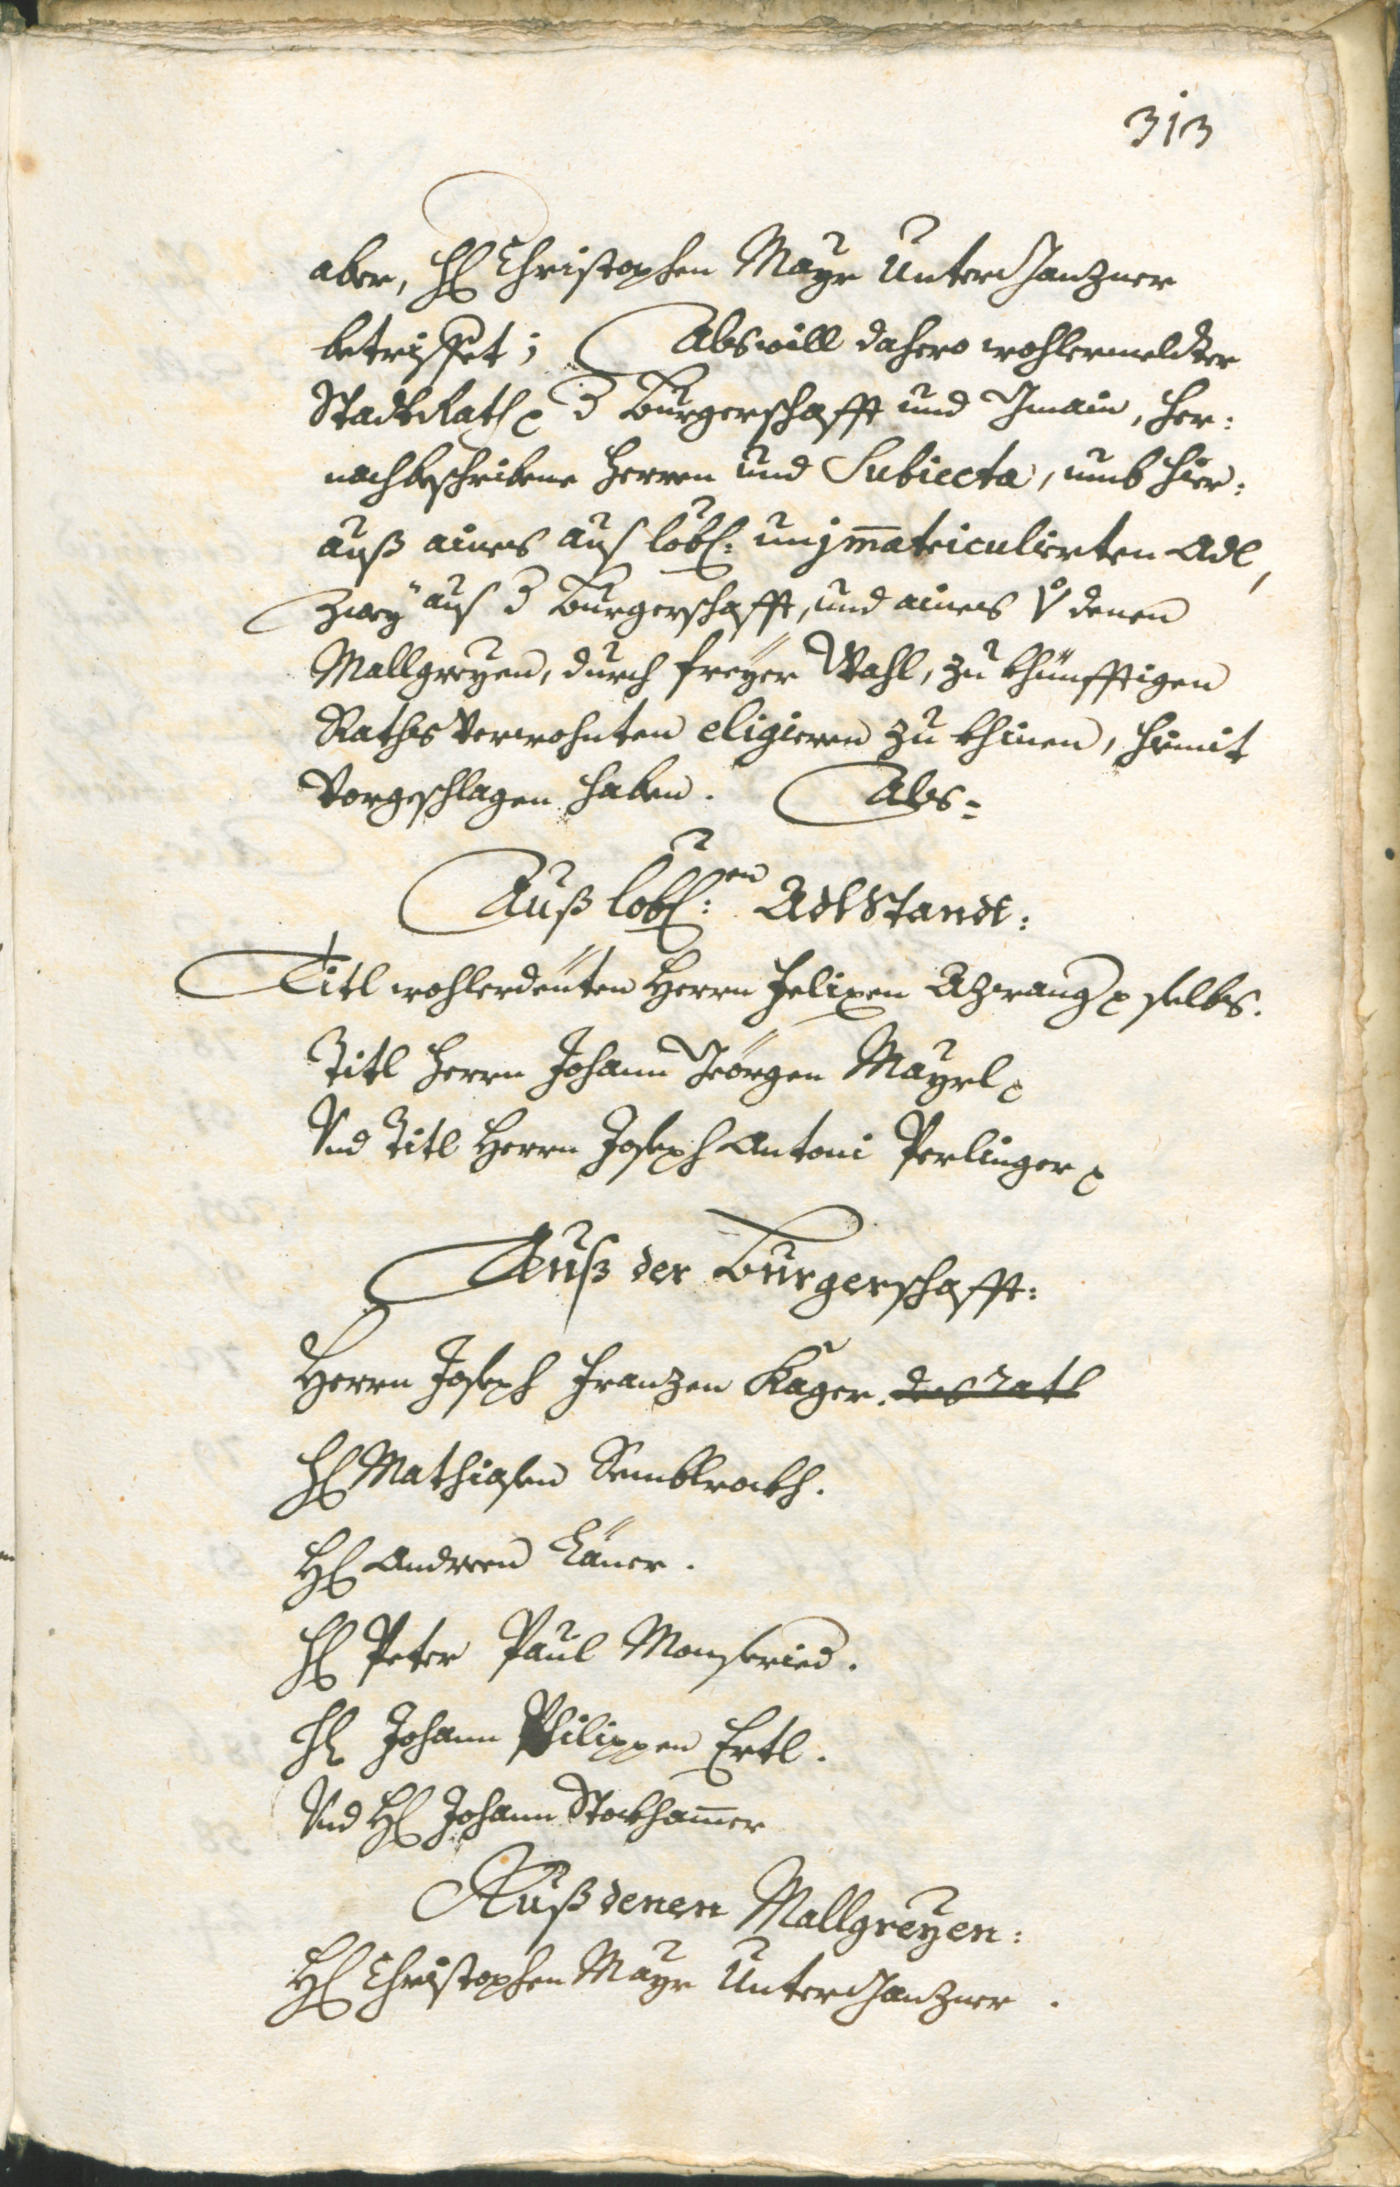 313
aber, H: Christophen Mayr Unterganzner
betriffet; Alß will dahero wohlermeldter
StadtRath p d Burgerschafft und Gmain, her:
nachbeschribene Herren und Subiecta, umb hier:
auß aines auß löbl: unjm̄atriculierten Adl,
zwey auß d Burgerschafft, und aines v denen
Mallgreyen, durch freyer Wahl, zu khünfftigen
Raths Verwohnten eligieren zu khinen, hiemit
Vorgeschlagen haben. Als=
Auß löbl:en AdlStandt:
Titl wohlerdeuten Herrn Felixen Azwang p selbs.
Titl Herrn Johann Geörgen Mayrl p
Und Titl Herrn Joseph Antoni Perlinger p
Auß der Burgerschafft:
Herrn Joseph Franzen Kager. des Rath
H: Mathiasen Semblrockh.
H: Andreen Läner.
H: Peter Paul Monfried.
H: Johann Philippen Ertl.
Und H: Johann Stockham̄er
Auß denen Mallgreyen:
H: Christophen Mayr Unterganzner.